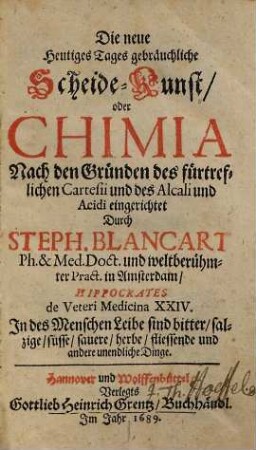 Die neue
Heutiges Tages gebräuchliche
Scheide-Kunst/
oder
CHIMIA
Nach den Gründen des fürtref-
lichen Cartesii und des Alcali und
Acidi eingerichtet
Durch
STEPH. BLANCART
Ph. & Med. Doct. und weltberühm-
ter Pract. in Amsterdam/
HIPPOCRATES
de Veteri Medicina XXIV.
In des Menschen Leibe sind bitter/sal-
zige/süsse/sauere/herbe/fliessende und
andere unendliche Dinge.
Hannover und Wolffenbüttel/
Verlegts
Gottlieb Heinrich Grentz/Buchhändl.
Im Jahr 1689.